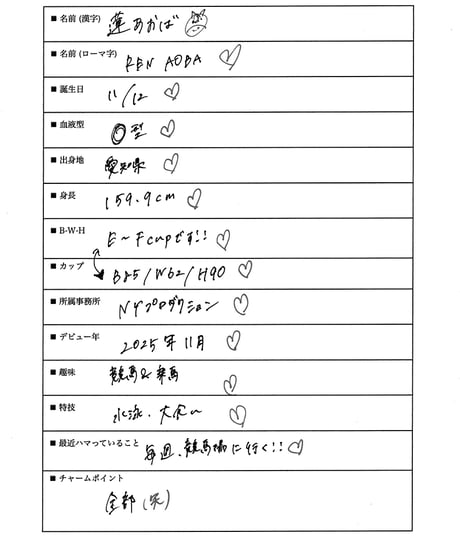 ■ 名前 (漢字) 蓮あおば
■ 名前 (ローマ字) REN AOBA ♡
■ 誕生日 11/12 ♡
■ 血液型 O型 ♡
■ 出身地 愛知県 ♡
■ 身長 159.9cm ♡
■ B-W-H E〜Fcupです!! ♡
■ カップ B85/W62/H90 ♡
■ 所属事務所 Nプロダクション ♡
■ デビュー年 2025年11月 ♡
■ 趣味 競馬&乗馬 ♡
■ 特技 水泳、大食い ♡
■ 最近ハマっていること 毎週、競馬場に行く!! ♡
■ チャームポイント
全部(笑)